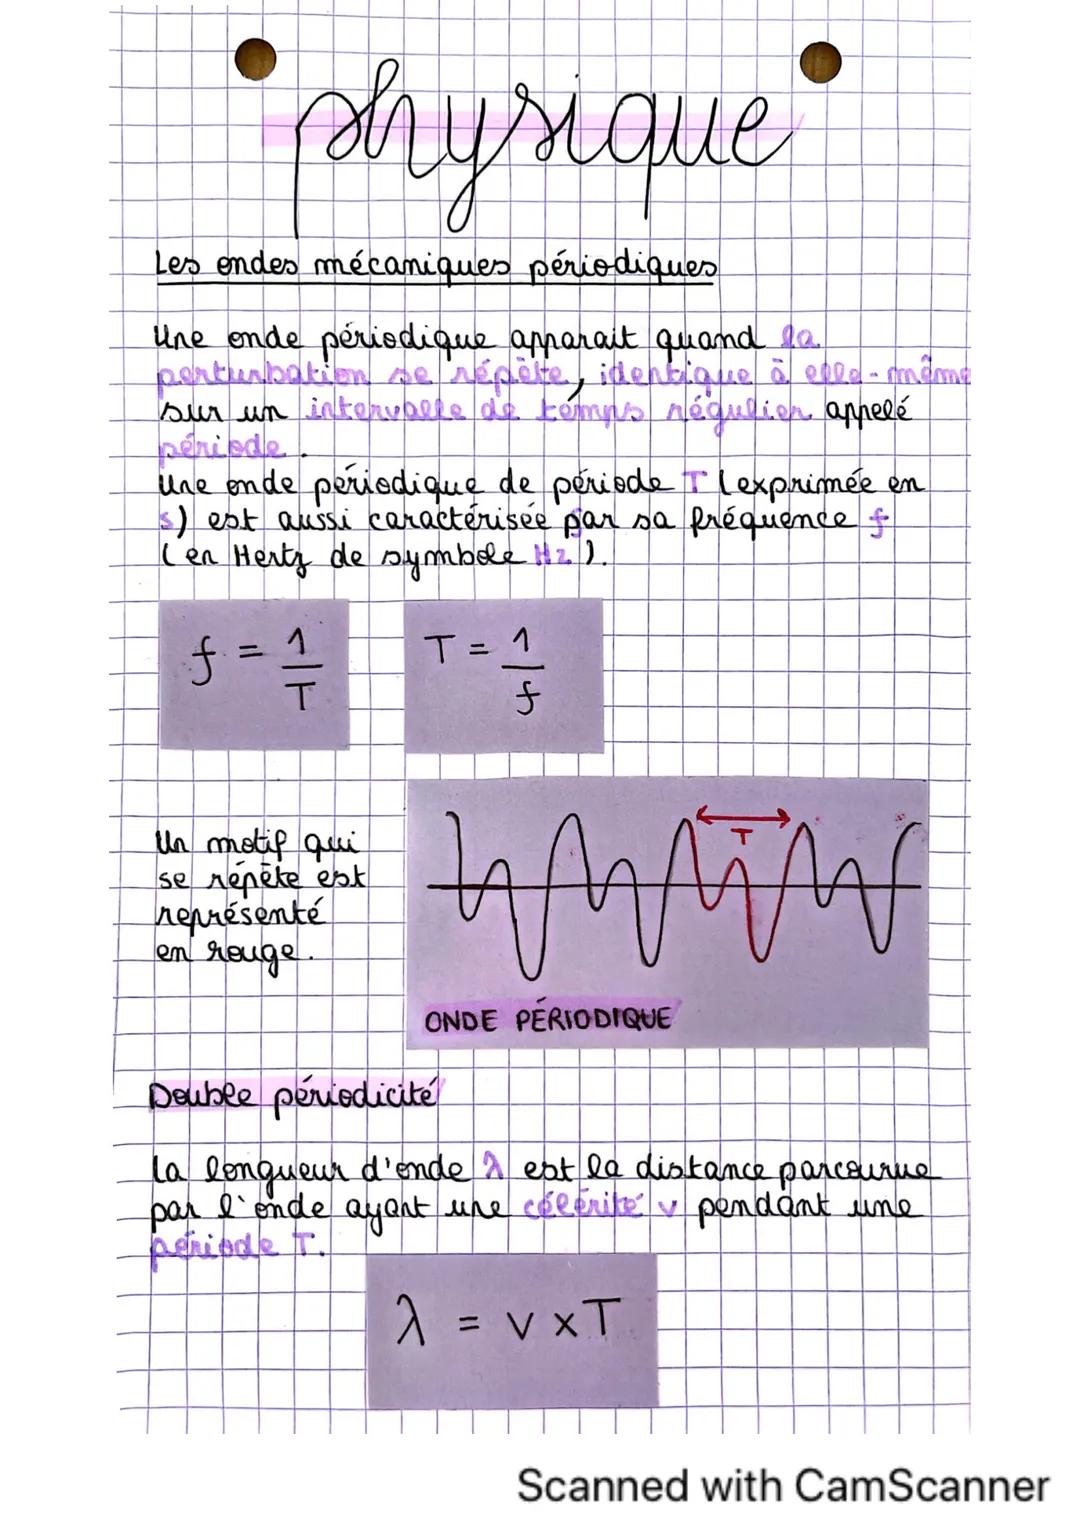 physique
Les ondes mécaniques périodiques
Une onde périodique apparait quand la
perturbation se répète, identique à elle-même
sur un intervalle de temps régulier appelé
période.
Une onde périodique de période T (exprimée en
s) est aussi caractérisée par sa fréquence f
(en Hertz de symbole Hz).
f = 1/T
T = 1/f
Un motif qui
se répète est
représenté
en rouge.
T
ONDE PÉRIODIQUE
Double périodicité
La longueur d'onde λ est la distance parcourue
par l'onde ayant une célérité v pendant une
période T.
λ = v x T
Scanned with CamScanner